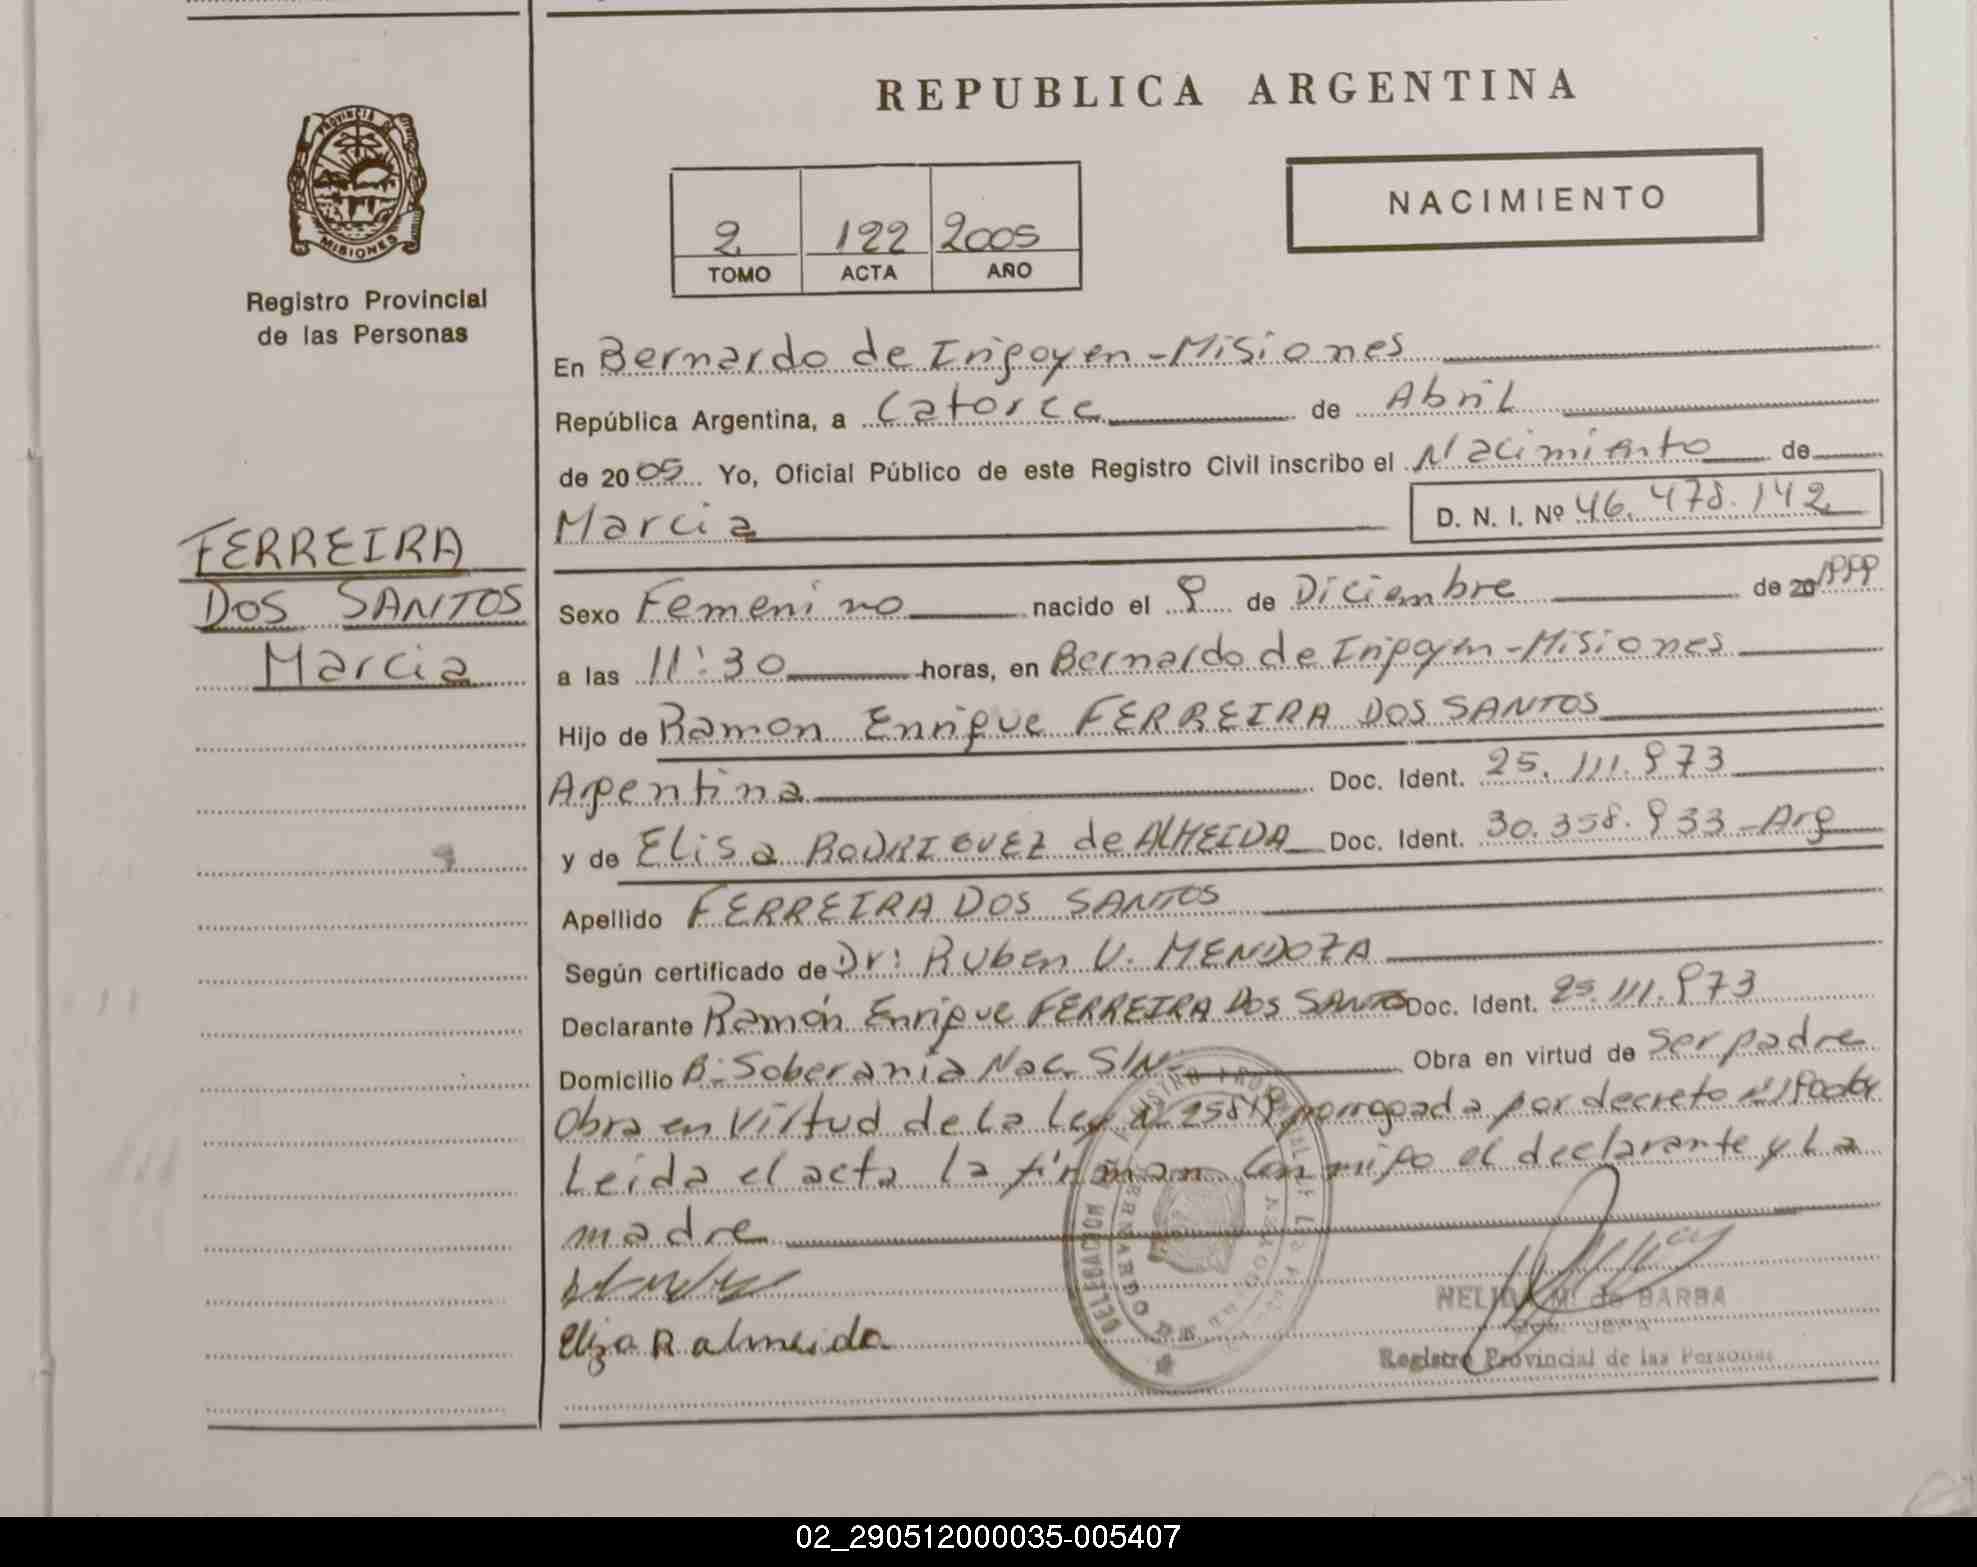 REPUBLICA ARGENTINA
PROVINCIA DE
MISIONES
Registro Provincial
de las Personas
NACIMIENTO
2 122 2005
TOMO ACTA AÑO
En Bernardo de Irigoyen - Misiones
República Argentina, a Catorce de Abril
de 2005. Yo, Oficial Público de este Registro Civil inscribo el Nacimiento de
Marcia D. N. I. Nº 46.478.142
FERREIRA
DOS SANTOS
Marcia
Sexo Femenino nacido el 9 de Diciembre de 20 1999
a las 11:30 horas, en Bernardo de Irigoyen - Misiones
Hijo de Ramon Enrique FERREIRA DOS SANTOS
Argentina Doc. Ident. 25.111.973
y de Elisa RODRIGUEZ de ALMEIDA Doc. Ident. 30.358.933 - Arg
Apellido FERREIRA DOS SANTOS
Según certificado de Dr: Ruben V. MENDOZA
Declarante Ramón Enrique FERREIRA DOS SANTO Doc. Ident. 25.111.973
Domicilio B: Soberanía Nac. S/N- Obra en virtud de Ser padre
Obra en Virtud de La Ley Nº 25819 porrogada por decreto
Leida el acta la firman Conmigo el declarante y La
madre
Eliza R almeida
NELIDA M. de BARBA
Registro Provincial de las Personas
DELEGACION BERNARDO DE
02_290512000035-005407